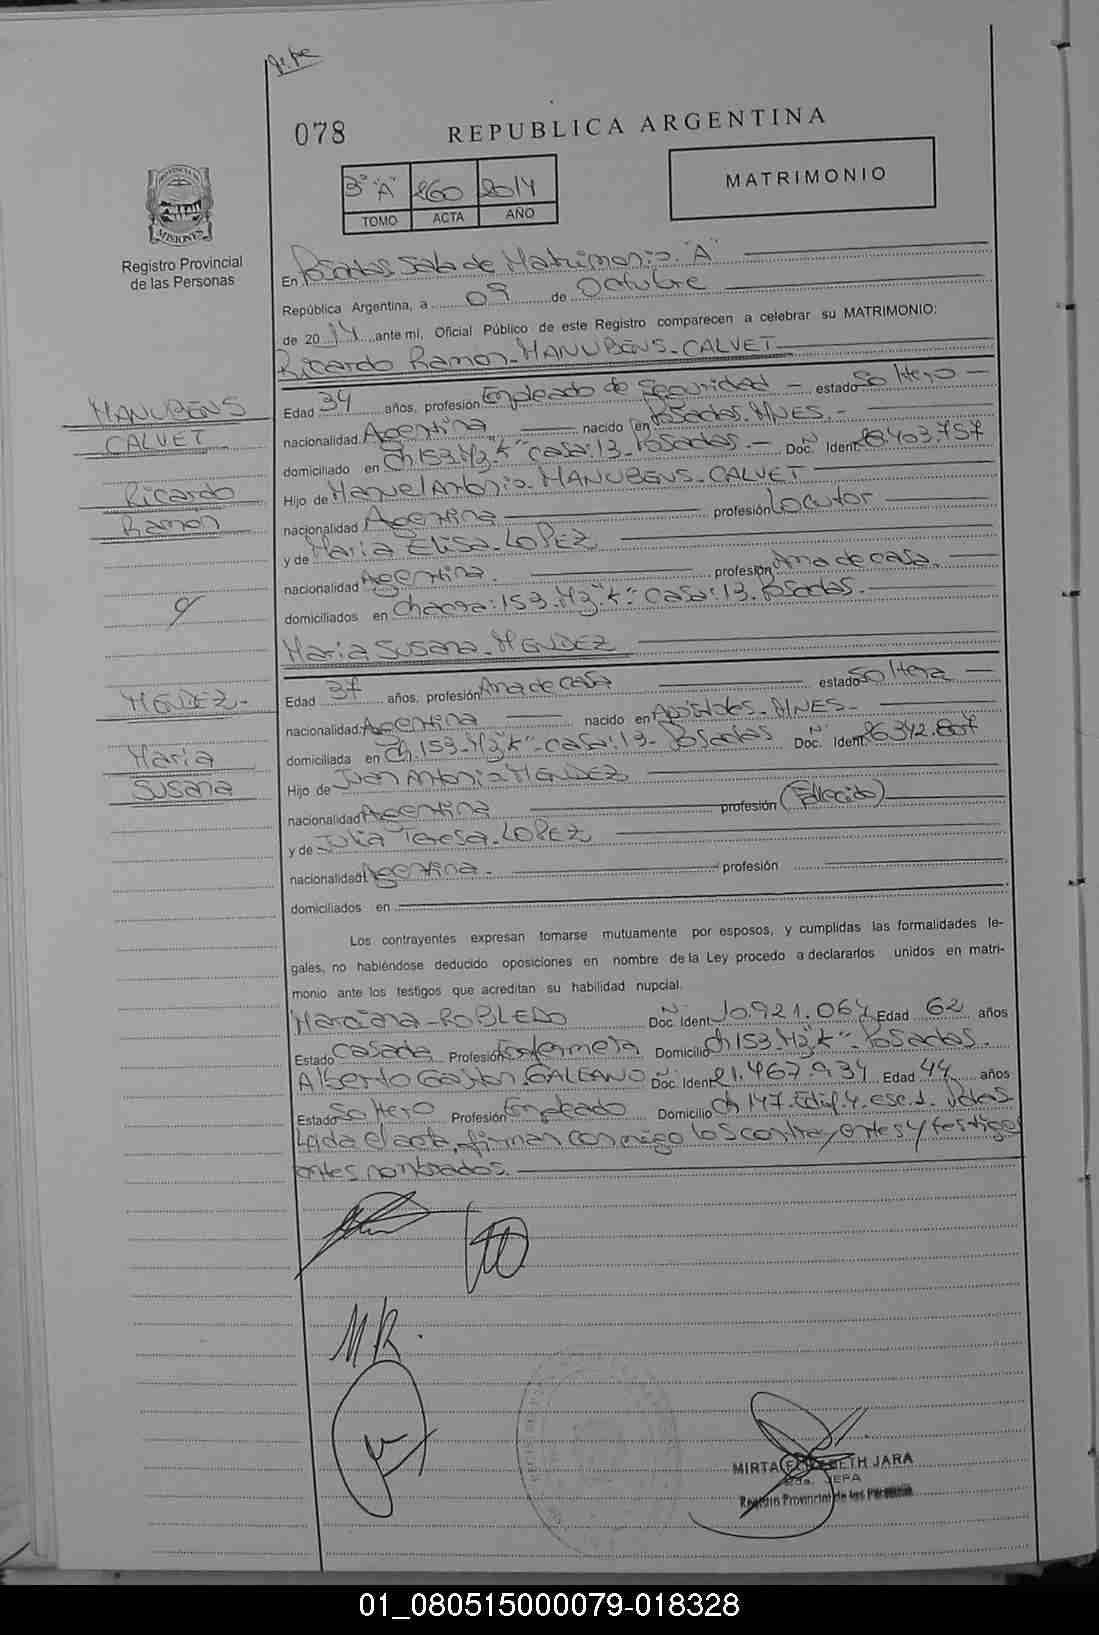 078
REPUBLICA ARGENTINA
3° "A" 260 2014
TOMO ACTA AÑO
MATRIMONIO
PROVINCIA DE
MISIONES
Registro Provincial
de las Personas
En Posadas Sala de Matrimonio "A"
República Argentina, a 09 de Octubre
de 2014, ante mi, Oficial Público de este Registro comparecen a celebrar su MATRIMONIO:
Ricardo Ramon-MANUBENS-CALVET
MANUBENS
CALVET
Ricardo
Ramón
Edad 34 años, profesión Empleado de Seguridad - estado Soltero -
nacionalidad Argentina nacido en Posadas-MNES.-
domiciliado en Ch:153-Mz"K"-casa:13-Posadas.- Doc. N° Ident. 28.403.757
Hijo de Manuel Antonio-MANUBENS-CALVET
nacionalidad Argentina profesión Locutor
y de Maria Elisa-LOPEZ
nacionalidad Argentina. profesión Ama de casa.
domiciliados en Chacra:153-Mz"K"-casa:13-Posadas.-
Maria Susana-MENDEZ
y
MENDEZ-
Maria
Susana
Edad 37 años, profesión Ama de casa estado Soltera -
nacionalidad: Argentina nacido en Apóstoles-MNES-
domiciliada en Ch.153-Mz"K"-casa:13-Posadas Doc. N° Ident. 26.342.807
Hijo de Juan Antonio MENDEZ
nacionalidad Argentina profesión (Fallecido)
y de Julia Teresa-LOPEZ
nacionalidad Argentina. profesión
domiciliados en
Los contrayentes expresan tomarse mutuamente por esposos, y cumplidas las formalidades le-
gales, no habiéndose deducido oposiciones en nombre de la Ley procedo a declararlos unidos en matri-
monio ante los testigos que acreditan su habilidad nupcial.
Marciana-ROBLEDO Doc. N° Ident. 10.921.067 Edad 62 años
Estado Casada Profesión Enfermera Domicilio Ch153-Mz"K"-Posadas.
Alberto Gaston GALEANO Doc. N° Ident. 21.467.934 Edad 44 años
Estado Soltero Profesión Empleado Domicilio Ch 147-Edif.4-esc.1-Pdas
Leida el acta, firman conmigo los contrayentes y testigos
antes nombrados.
M R.
MIRTA ELIZABETH JARA
Registro Provincial de las Personas
01_080515000079-018328